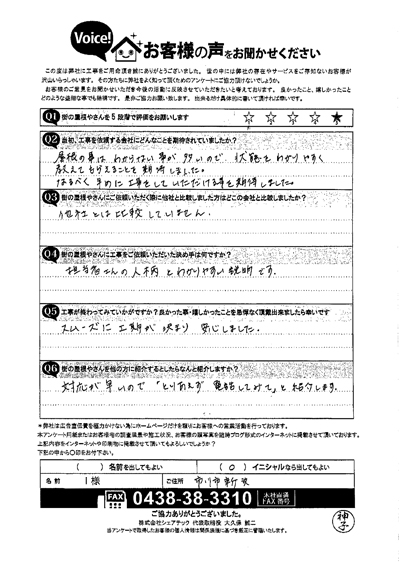 Voice!
お客様の声をお聞かせください
この度は弊社に工事をご用命頂き誠にありがとうございました。世の中には弊社の存在やサービスをご存知ないお客様が
沢山いらっしゃいます。その方たちに弊社をよく知って頂くためのアンケートにご協力頂けないでしょうか。
お客様のご意見をお聞かせいただき今後の活動に反映させていただきたいと考えております。良かったこと、嬉しかったこと
どのような些細な事でも結構です。是非ご協力お願い致します。出来るだけ具体的に書いて頂ければ幸いです。
Q1 街の屋根やさんを5段階で評価をお願いします ☆ ☆ ☆ ☆ ★
Q2 当初、工事を依頼する会社にどんなことを期待されていましたか?
屋根の事は わからない事が多いので、状態をわかりやすく
教えてもらえることを期待しました。
なるべく早めに工事をしていただける事を期待しました。
Q3 街の屋根やさんにご依頼いただく際に他社と比較しました方はどこの会社と比較しましたか?
他社とは比較していません。
Q4 街の屋根やさんに工事をご依頼いただいた決め手は何ですか?
担当者さんの人柄とわかりやすい説明です。
Q5 工事が終わってみていかがですか?良かった事・嬉しかったことを忌憚なく頂戴出来ましたら幸いです
スムーズに工期が決まり 安心しました。
Q6 街の屋根やさんを他の方に紹介するとしたらなんと紹介しますか?
対応が早いので「とりあえず電話してみて」と紹介します。
*弊社は広告宣伝費を極力かけない為にホームページだけを頼りにお客様への営業活動を行っております。
本アンケート用紙またはお客様宅の調査風景や施工状況、お客様の顔写真を随時ブログ形式のインターネットに掲載させて頂いております。
上記内容をインターネットや印刷物に掲載させて頂いてもよろしいでしょうか?
下記の中から〇印をお付下さい。
( ) 名前を出してもよい ( 〇 ) イニシャルなら出してもよい
名前 I様 ご住所 市川市新浜
FAX 0438-38-3310 本社直通 FAX番号
ご協力ありがとうございました。
株式会社シェアテック 代表取締役 大久保 誠二
当アンケートで取得したお客様の個人情報は関係法規に基づき厳正に管理いたします。
神子